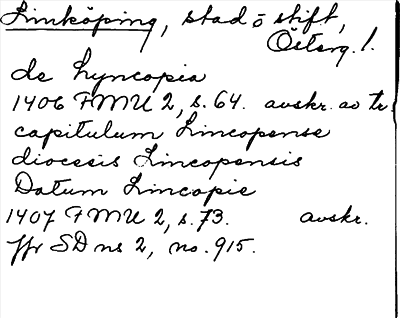 Linköping, stad o stift,
Österg. l.
de Lyncopia
1406 FMU 2, s. 64. avskr. av tr
capitulum Lincopense
diocesis Lincopensis
Datum Lincopie
1407 FMU 2, s. 73. avskr.
jfr SD ns 2, no. 915.